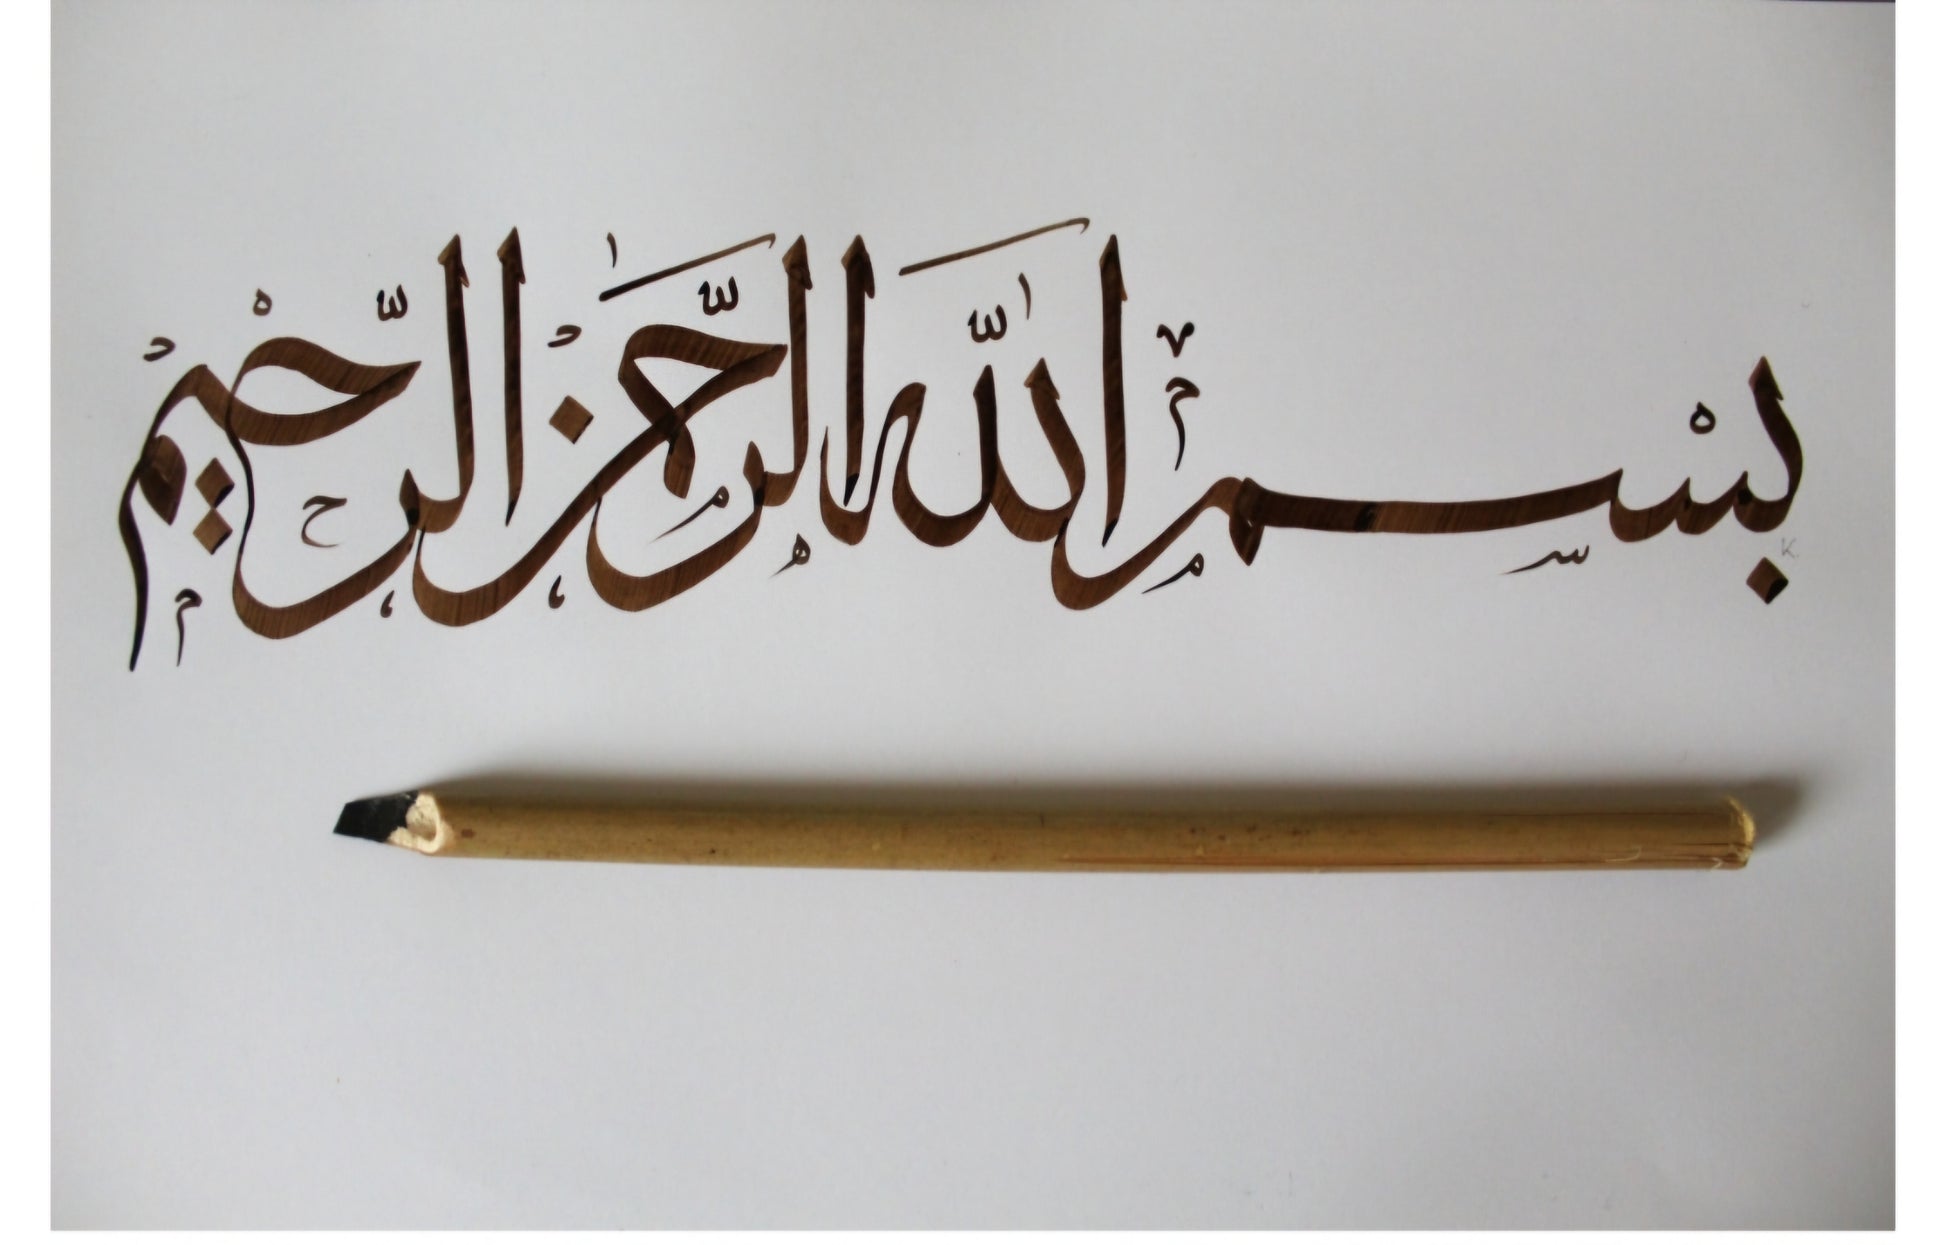 بسم الله الرحمن الرحيم
K.